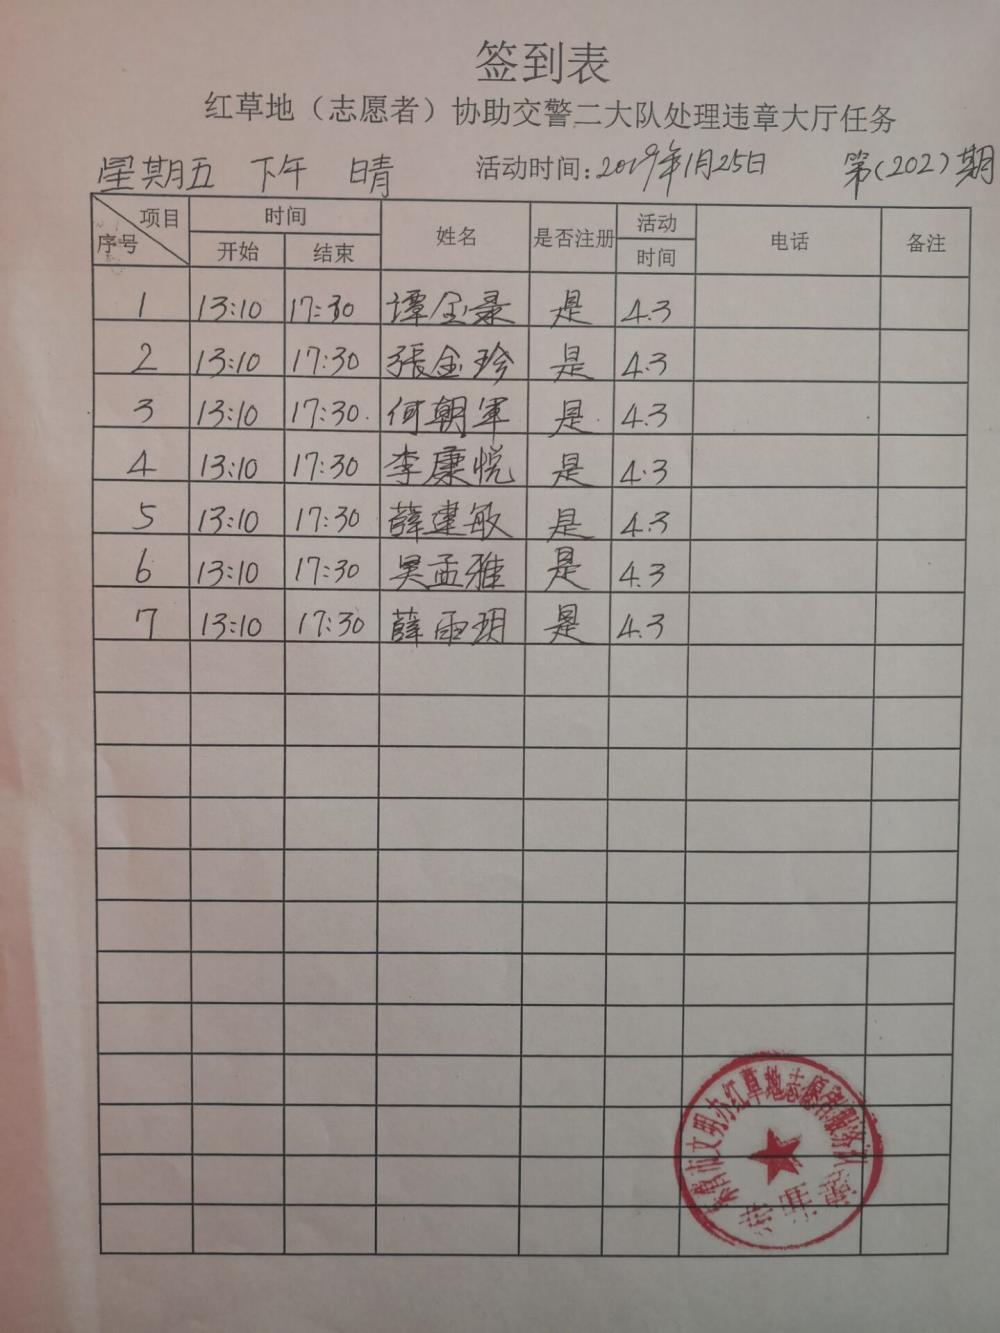 签到表
红草地（志愿者）协助交警二大队处理违章大厅任务
星期五 下午 晴 活动时间:2019年1月25日 第(202)期
项目 时间 姓名 是否注册 活动 电话 备注
序号 开始 结束 时间
1 13:10 17:30 谭金录 是 4.3
2 13:10 17:30 張金珍 是 4.3
3 13:10 17:30 何朝軍 是 4.3
4 13:10 17:30 李康悦 是 4.3
5 13:10 17:30 薛建敏 是 4.3
6 13:10 17:30 吴孟雅 是 4.3
7 13:10 17:30 薛雨玥 是 4.3
市文明办红草地志愿者服务队